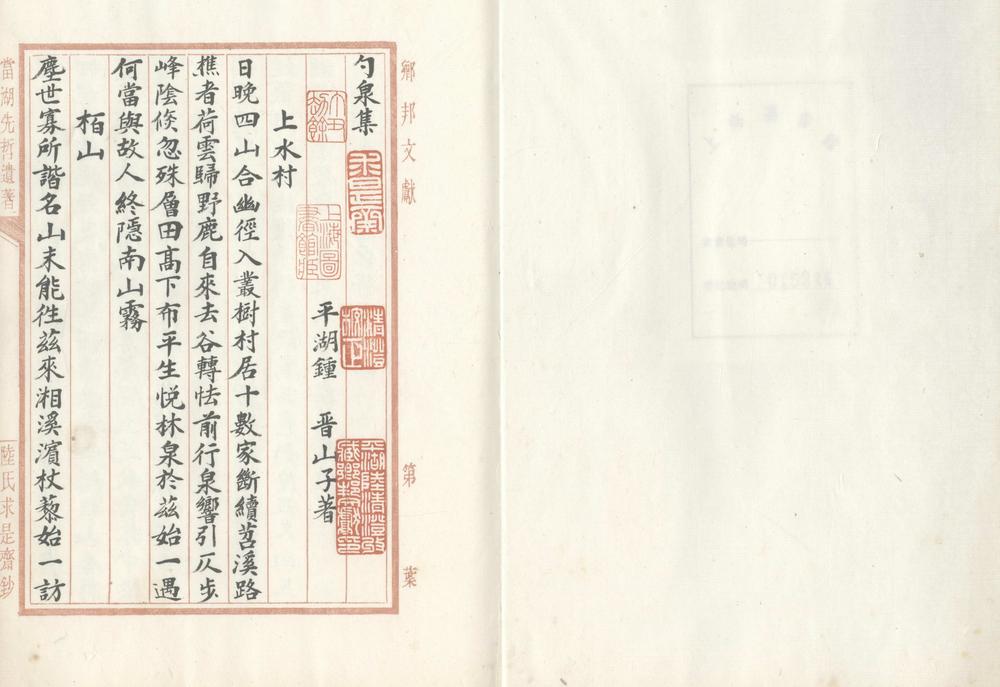 鄉邦文獻
第 葉
勺泉集
平湖鍾 晋山子著
上水村
日晚四山合幽徑入叢樹村居十數家斷續苕溪路
樵者荷雲歸野鹿自來去谷轉怯前行泉響引仄步
峰陰倏忽殊層田高下布平生悦林泉於茲始一遇
何當與故人終隱南山霧
栢山
塵世寡所諧名山未能徃茲來湘溪濱杖藜始一訪
當湖先哲遺著
陸氏求是齋鈔
求是齋
上海圖書館藏
清澄
平湖陸清澄